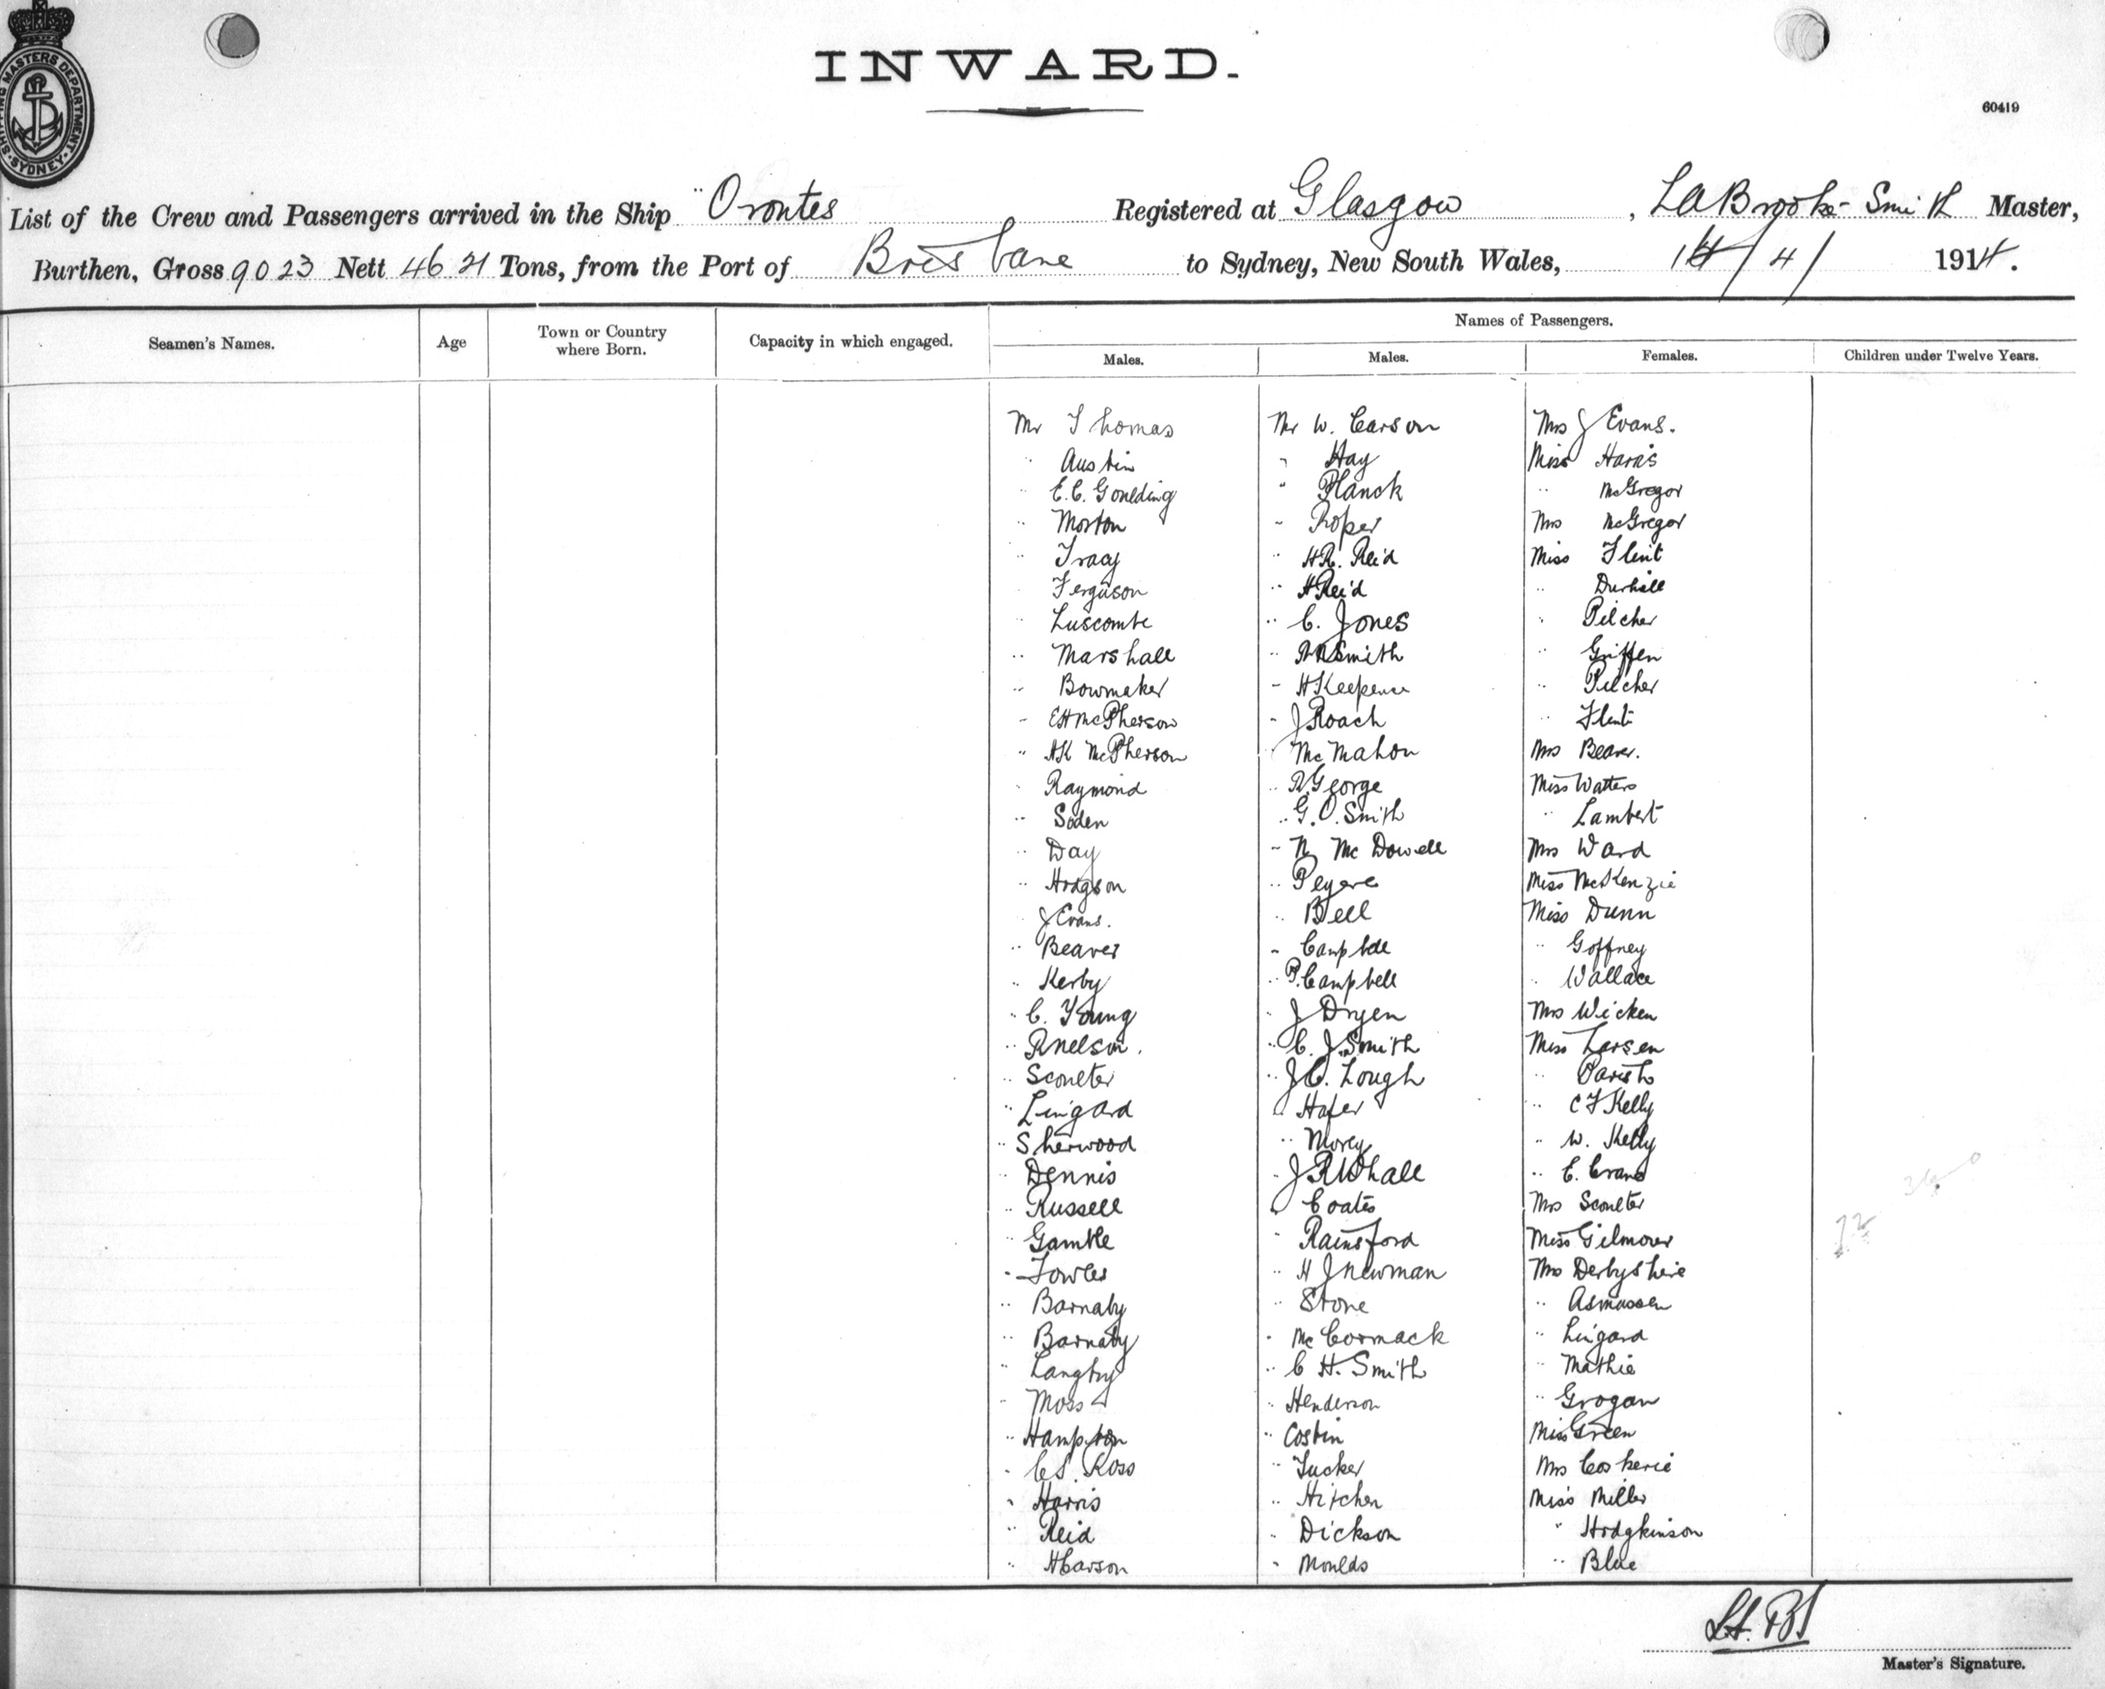 SHIPPING MASTERS DEPARTMENT · SYDNEY ·
INWARD.
60419
List of the Crew and Passengers arrived in the Ship "Orontes Registered at Glasgow, L A Brooke-Smith Master,
Burthen, Gross 9023 Nett 4621 Tons, from the Port of Brisbane to Sydney, New South Wales, 14/4/ 1914.
Names of Passengers.
Seamen's Names. Age Town or Country where Born. Capacity in which engaged. Males. Males. Females. Children under Twelve Years.
Mr Thomas Mr W. Carson Mrs J Evans.
" Austin " Hay Miss Harris
" E.C. Goulding " Planck " McGregor
" Morton " Roper Mrs McGregor
" Tracy " H.R. Reid Miss Flint
" Ferguson " H Reid "
" Luscombe " C. Jones " Pilcher
" Marshall " Smith " Griffen
" Bowmaker " H Keepence " Pilcher
" EH McPherson " J Roach " Flint
" AK McPherson " McMahon Mrs Beaver.
" Raymond " R George Miss Watters
" Soden " G. O. Smith " Lambert
" Day " N McDowell Mrs Ward
" Hodgson " Miss McKenzie
J Evans. " Bell Miss Dunn
" Beaver " Campbell " Goffney
" Kerby " P. Campbell " Wallace
" C. Young " J Dryen Mrs Wicken
" R Nelson. " C. J. Smith Miss Larsen
" Scoulter " J C. Lough " Parish
" Lingard " Hofer " C F Kelly
" Sherwood " Morey " W. Kelly
" Dennis " J R Whall " E. Evans
" Russell " Coates Mrs Scoulter
" Gamble " Rainsford Miss Gilmour
" Fowles " H J Newman Mrs Derbyshire
" Barnaby " Stone " Asmussen
" Barnaby " McCormack " Lingard
" Langtry " C H. Smith " Mathie
" Moss " Henderson " Grogan
" Hampton " Costin Miss Green
" Ross " Tucker Mrs Coskerie
" Harris " Hitchen Miss Miller
" Reid " Dickson " Hodgkinson
" H Carson " Moulds " Blue
Master's Signature.